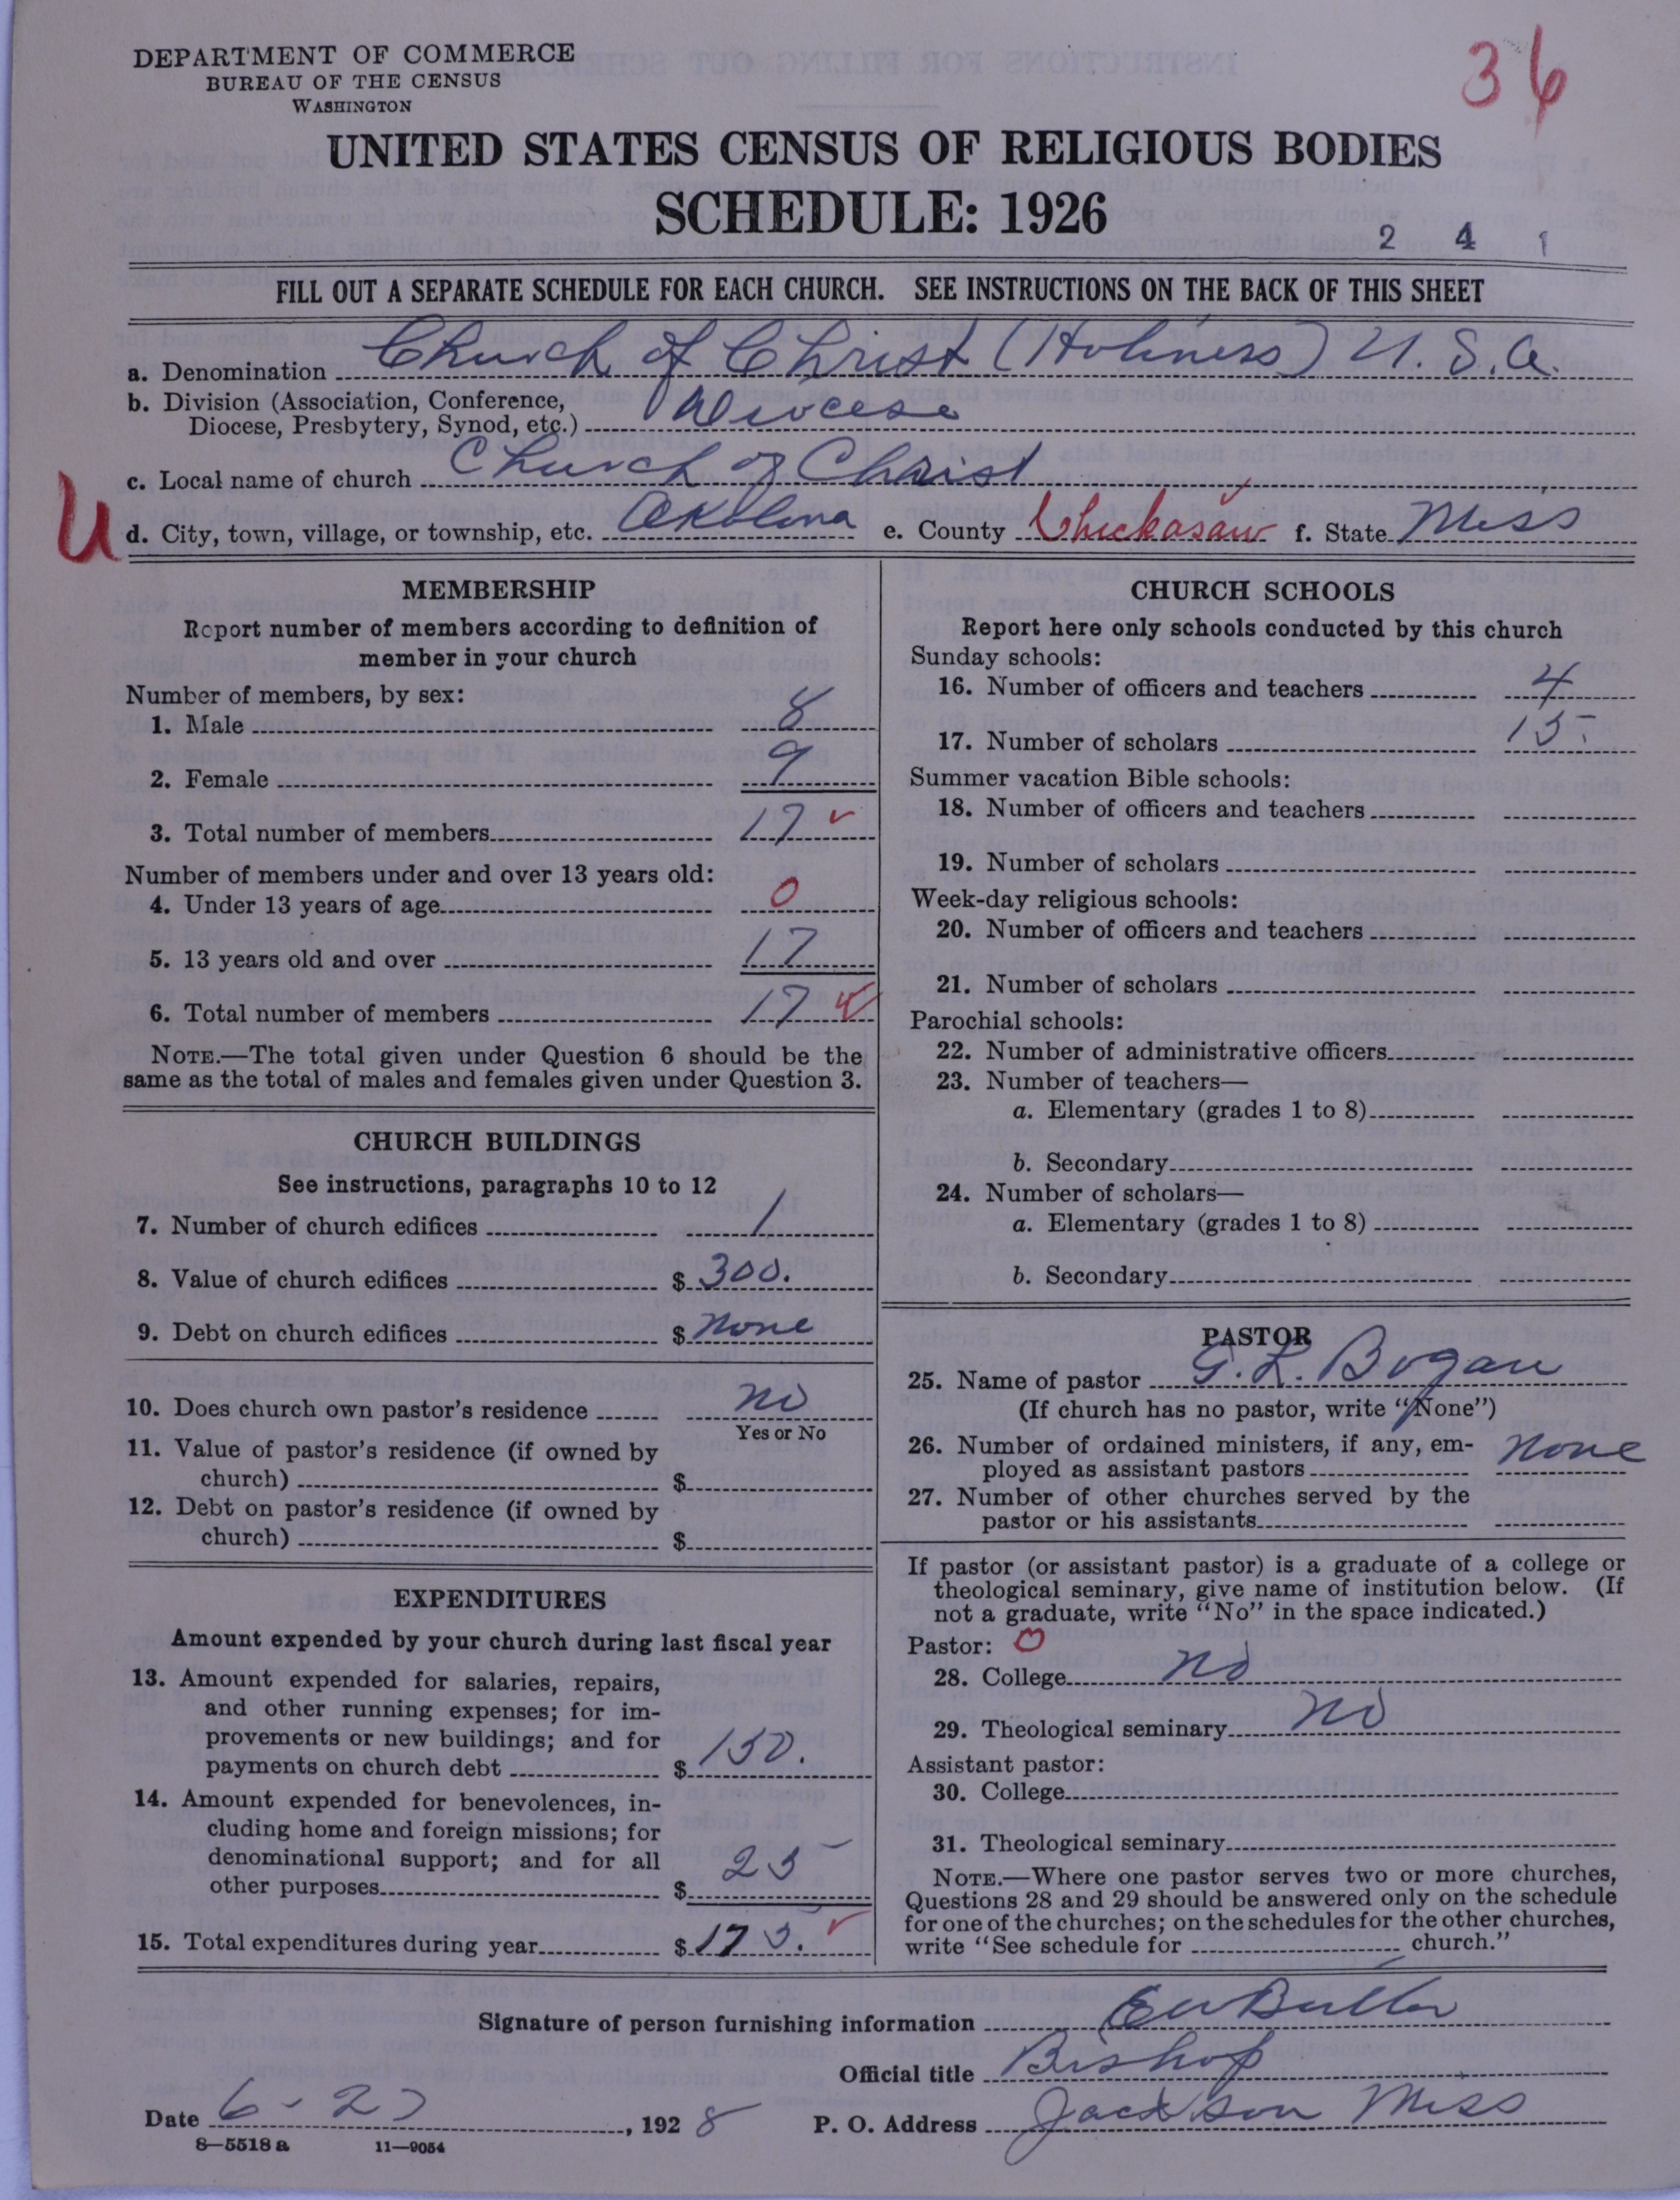 DEPARTMENT OF COMMERCE
BUREAU OF THE CENSUS
WASHINGTON
36
UNITED STATES CENSUS OF RELIGIOUS BODIES
SCHEDULE: 1926
2 4 1
FILL OUT A SEPARATE SCHEDULE FOR EACH CHURCH. SEE INSTRUCTIONS ON THE BACK OF THIS SHEET
a. Denomination Church of Christ (Holiness) U.S.A.
b. Division (Association, Conference,
Diocese, Presbytery, Synod, etc.) Diocese
c. Local name of church Church of Christ
U
d. City, town, village, or township, etc. Okolona e. County Chickasaw f. State Miss
MEMBERSHIP
Report number of members according to definition of
member in your church
Number of members, by sex:
1. Male 8
2. Female 9
3. Total number of members 17 ✓
Number of members under and over 13 years old:
4. Under 13 years of age 0
5. 13 years old and over 17
6. Total number of members 17
NOTE.—The total given under Question 6 should be the
same as the total of males and females given under Question 3.
CHURCH BUILDINGS
See instructions, paragraphs 10 to 12
7. Number of church edifices 1
8. Value of church edifices $ 300.
9. Debt on church edifices $ None
10. Does church own pastor's residence No
Yes or No
11. Value of pastor's residence (if owned by
church) $
12. Debt on pastor's residence (if owned by
church) $
EXPENDITURES
Amount expended by your church during last fiscal year
13. Amount expended for salaries, repairs,
and other running expenses; for im-
provements or new buildings; and for
payments on church debt $ 150.
14. Amount expended for benevolences, in-
cluding home and foreign missions; for
denominational support; and for all
other purposes $ 25
15. Total expenditures during year $ 175. ✓
CHURCH SCHOOLS
Report here only schools conducted by this church
Sunday schools:
16. Number of officers and teachers 4
17. Number of scholars 15
Summer vacation Bible schools:
18. Number of officers and teachers
19. Number of scholars
Week-day religious schools:
20. Number of officers and teachers
21. Number of scholars
Parochial schools:
22. Number of administrative officers
23. Number of teachers—
a. Elementary (grades 1 to 8)
b. Secondary
24. Number of scholars—
a. Elementary (grades 1 to 8)
b. Secondary
PASTOR
25. Name of pastor G. L. Bogan
(If church has no pastor, write "None")
26. Number of ordained ministers, if any, em-
ployed as assistant pastors None
27. Number of other churches served by the
pastor or his assistants
If pastor (or assistant pastor) is a graduate of a college or
theological seminary, give name of institution below. (If
not a graduate, write "No" in the space indicated.)
Pastor: 0
28. College No
29. Theological seminary No
Assistant pastor:
30. College
31. Theological seminary
NOTE.—Where one pastor serves two or more churches,
Questions 28 and 29 should be answered only on the schedule
for one of the churches; on the schedules for the other churches,
write "See schedule for church."
Signature of person furnishing information
Official title Bishop
Date 6-27, 1928 P. O. Address Jackson Miss
8—5518 a 11—9054